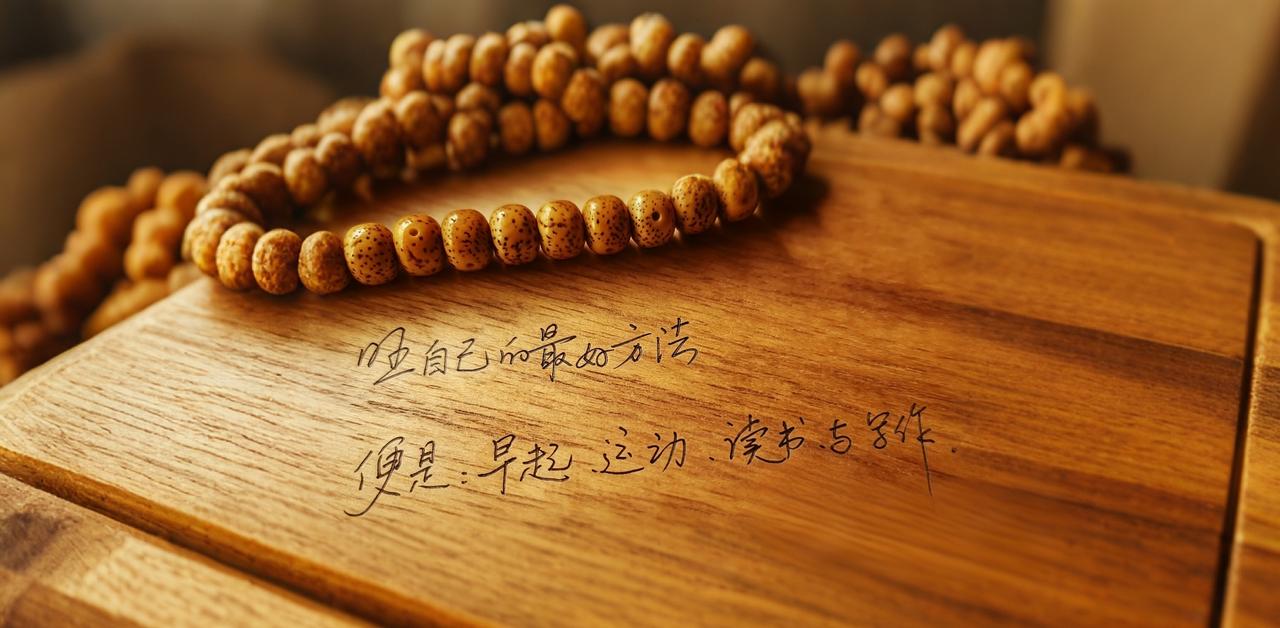 旺自己的最好方法
便是:早起.运动.读书.与写作.